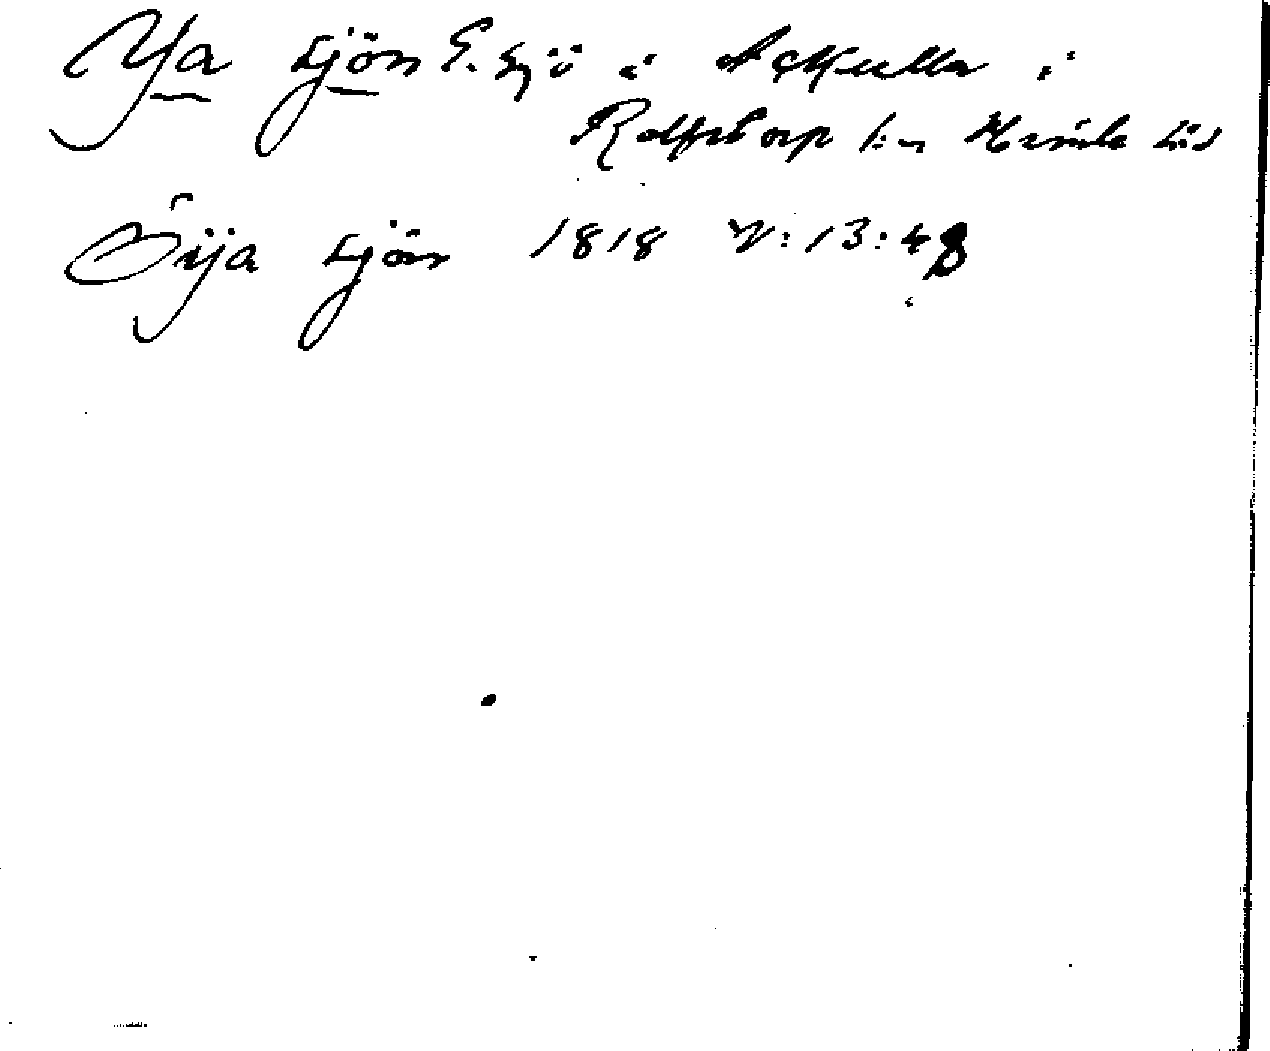 Ya sjön E. sjö i Ackulla i
Rolfstorp s:n Himle hd
Öija sjön 1818 V:13:48